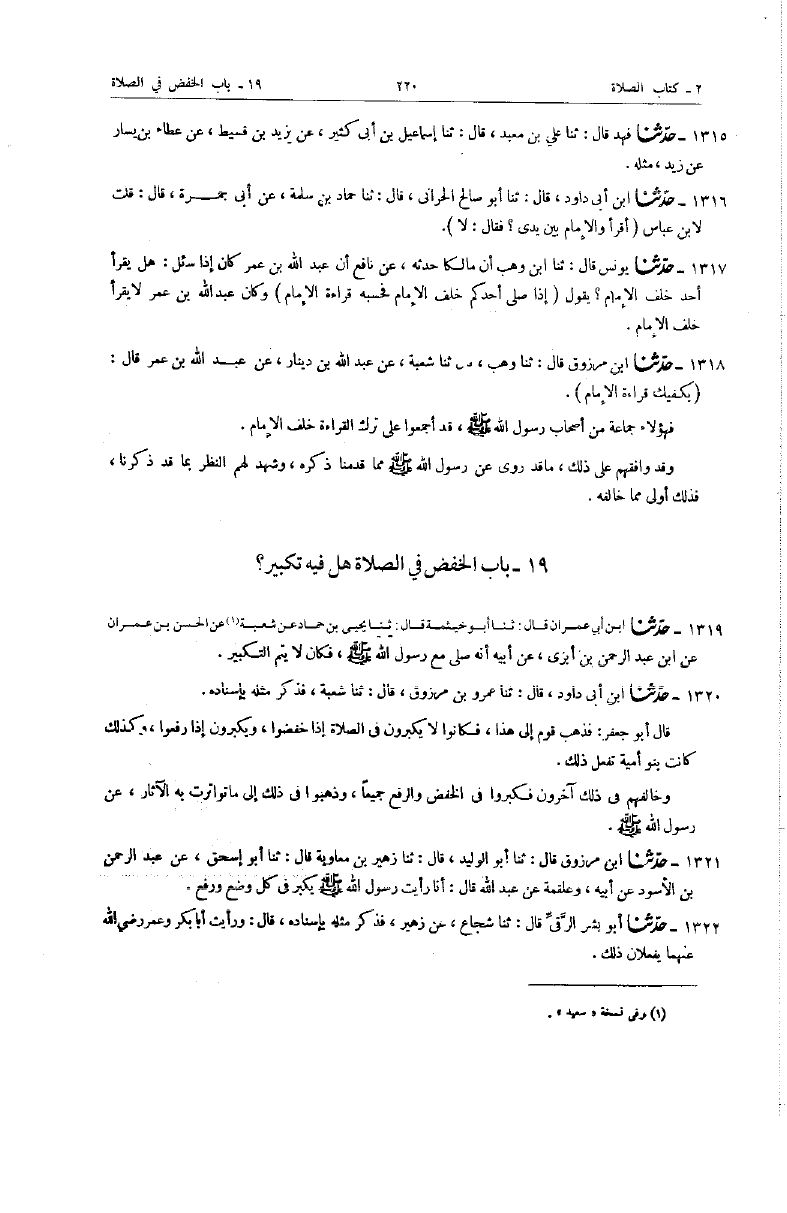 ٢ ـ كتاب الصلاة ٢٢٠ ١٩ ـ باب الخفض في الصلاة
١٣١٥ ـ حدّثنا فهد قال : ثنا علي بن معبد ، قال : ثنا إسماعيل بن أبى كثير ، عن يزيد بن قسيط ، عن عطاء بن يسار
عن زيد ، مثله .
١٣١٦ ـ حدّثنا ابن أبى داود ، قال : ثنا أبو صالح الحرانى ، قال : ثنا حماد بن سلمة ، عن أبى جمرة ، قال : قلت
لابن عباس ( أقرأ والإمام بين يدى ؟ فقال : لا ).
١٣١٧ ـ حدّثنا يونس قال : ثنا ابن وهب أن مالكا حدثه ، عن نافع أن عبد الله بن عمر كان إذا سئل : هل يقرأ
أحد خلف الإمام ؟ يقول ( إذا صلى أحدكم خلف الإمام فحسبه قراءة الإمام ) وكان عبدالله بن عمر لايقرأ
خلف الإمام .
١٣١٨ ـ حدّثنا ابن مرزوق قال : ثنا وهب ، ثنا شعبة ، عن عبد الله بن دينار ، عن عبد الله بن عمر قال :
( يكفيك قراءة الإمام ) .
فهؤلاء جماعة من أصحاب رسول الله ﷺ ، قد أجمعوا على ترك القراءة خلف الإمام .
وقد وافقهم على ذلك ، ماقد روى عن رسول الله ﷺ مما قدمنا ذكره ، وشهد لهم النظر بما قد ذكرنا ،
فذلك أولى مما خالفه .
١٩ ـ باب الخفض في الصلاة هل فيه تكبير؟
١٣١٩ ـ حدّثنا ابن أبى عمران قال : ثنا أبو خيثمة قال : ثنا يحيى بن حماد عن شعبة (١) عن الحسن بن عمران
عن ابن عبد الرحمن بن أبزى ، عن أبيه أنه صلى مع رسول الله ﷺ ، فكان لا يتم التكبير .
١٣٢٠ ـ حدّثنا ابن أبى داود ، قال : ثنا عمرو بن مرزوق ، قال : ثنا شعبة ، فذكر مثله بإسناده .
قال أبو جعفر: فذهب قوم إلى هذا ، فكانوا لا يكبرون فى الصلاة إذا خفضوا ، ويكبرون إذا رفعوا ، وكذلك
كانت بنو أمية تفعل ذلك .
وخالفهم فى ذلك آخرون فكبروا فى الخفض والرفع جميعاً ، وذهبوا فى ذلك إلى ماتواترت به الآثار ، عن
رسول الله ﷺ .
١٣٢١ ـ حدّثنا ابن مرزوق قال : ثنا أبو الوليد ، قال : ثنا زهير بن معاوية قال : ثنا أبو إسحق ، عن عبد الرحمن
بن الأسود عن أبيه ، وعلقمة عن عبد الله قال : أنا رأيت رسول الله ﷺ يكبر فى كل وضع ورفع .
١٣٢٢ ـ حدّثنا أبو بشر الرَّقىُّ قال : ثنا شجاع ، عن زهير ، فذكر مثله بإسناده ، قال : ورأيت أبا بكر وعمر رضي الله
عنهما يفعلان ذلك .
(١) وفى نسخة « سعيد » .